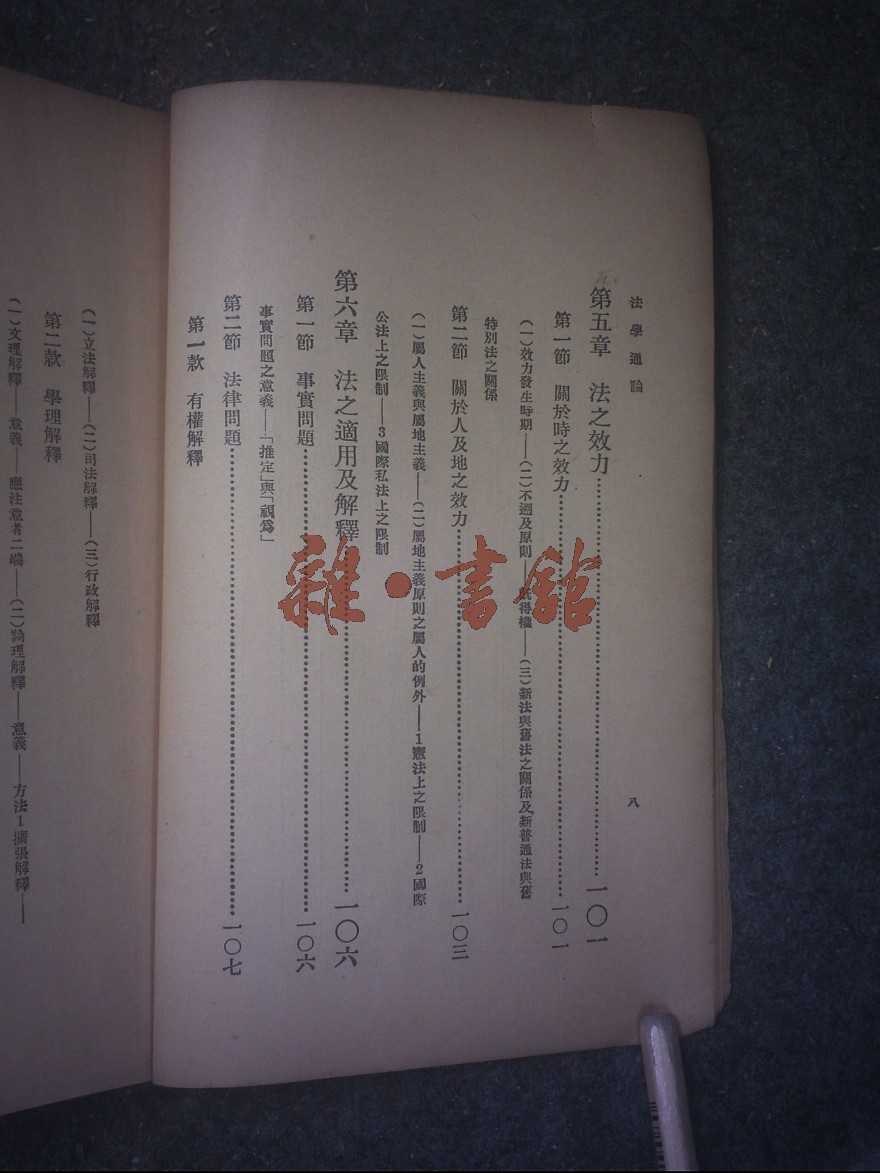 法學通論
八
第五章 法之效力……一〇一
第一節 關於時之效力……一〇一
(一)效力發生時期——(二)不溯及原則——旣得權——(三)新法與舊法之關係及新普通法與舊
特別法之關係
第二節 關於人及地之效力……一〇三
(一)屬人主義與屬地主義——(二)屬地主義原則之屬人的例外——1憲法上之限制——2國際
公法上之限制——3國際私法上之限制
第六章 法之適用及解釋……一〇六
第一節 事實問題……一〇六
事實問題之意義——「推定」與「視爲」
第二節 法律問題……一〇七
第一款 有權解釋
(一)立法解釋——(二)司法解釋——(三)行政解釋
第二款 學理解釋
(一)文理解釋——意義——應注意者二端——(二)論理解釋——意義——方法1擴張解釋——
雜·書館